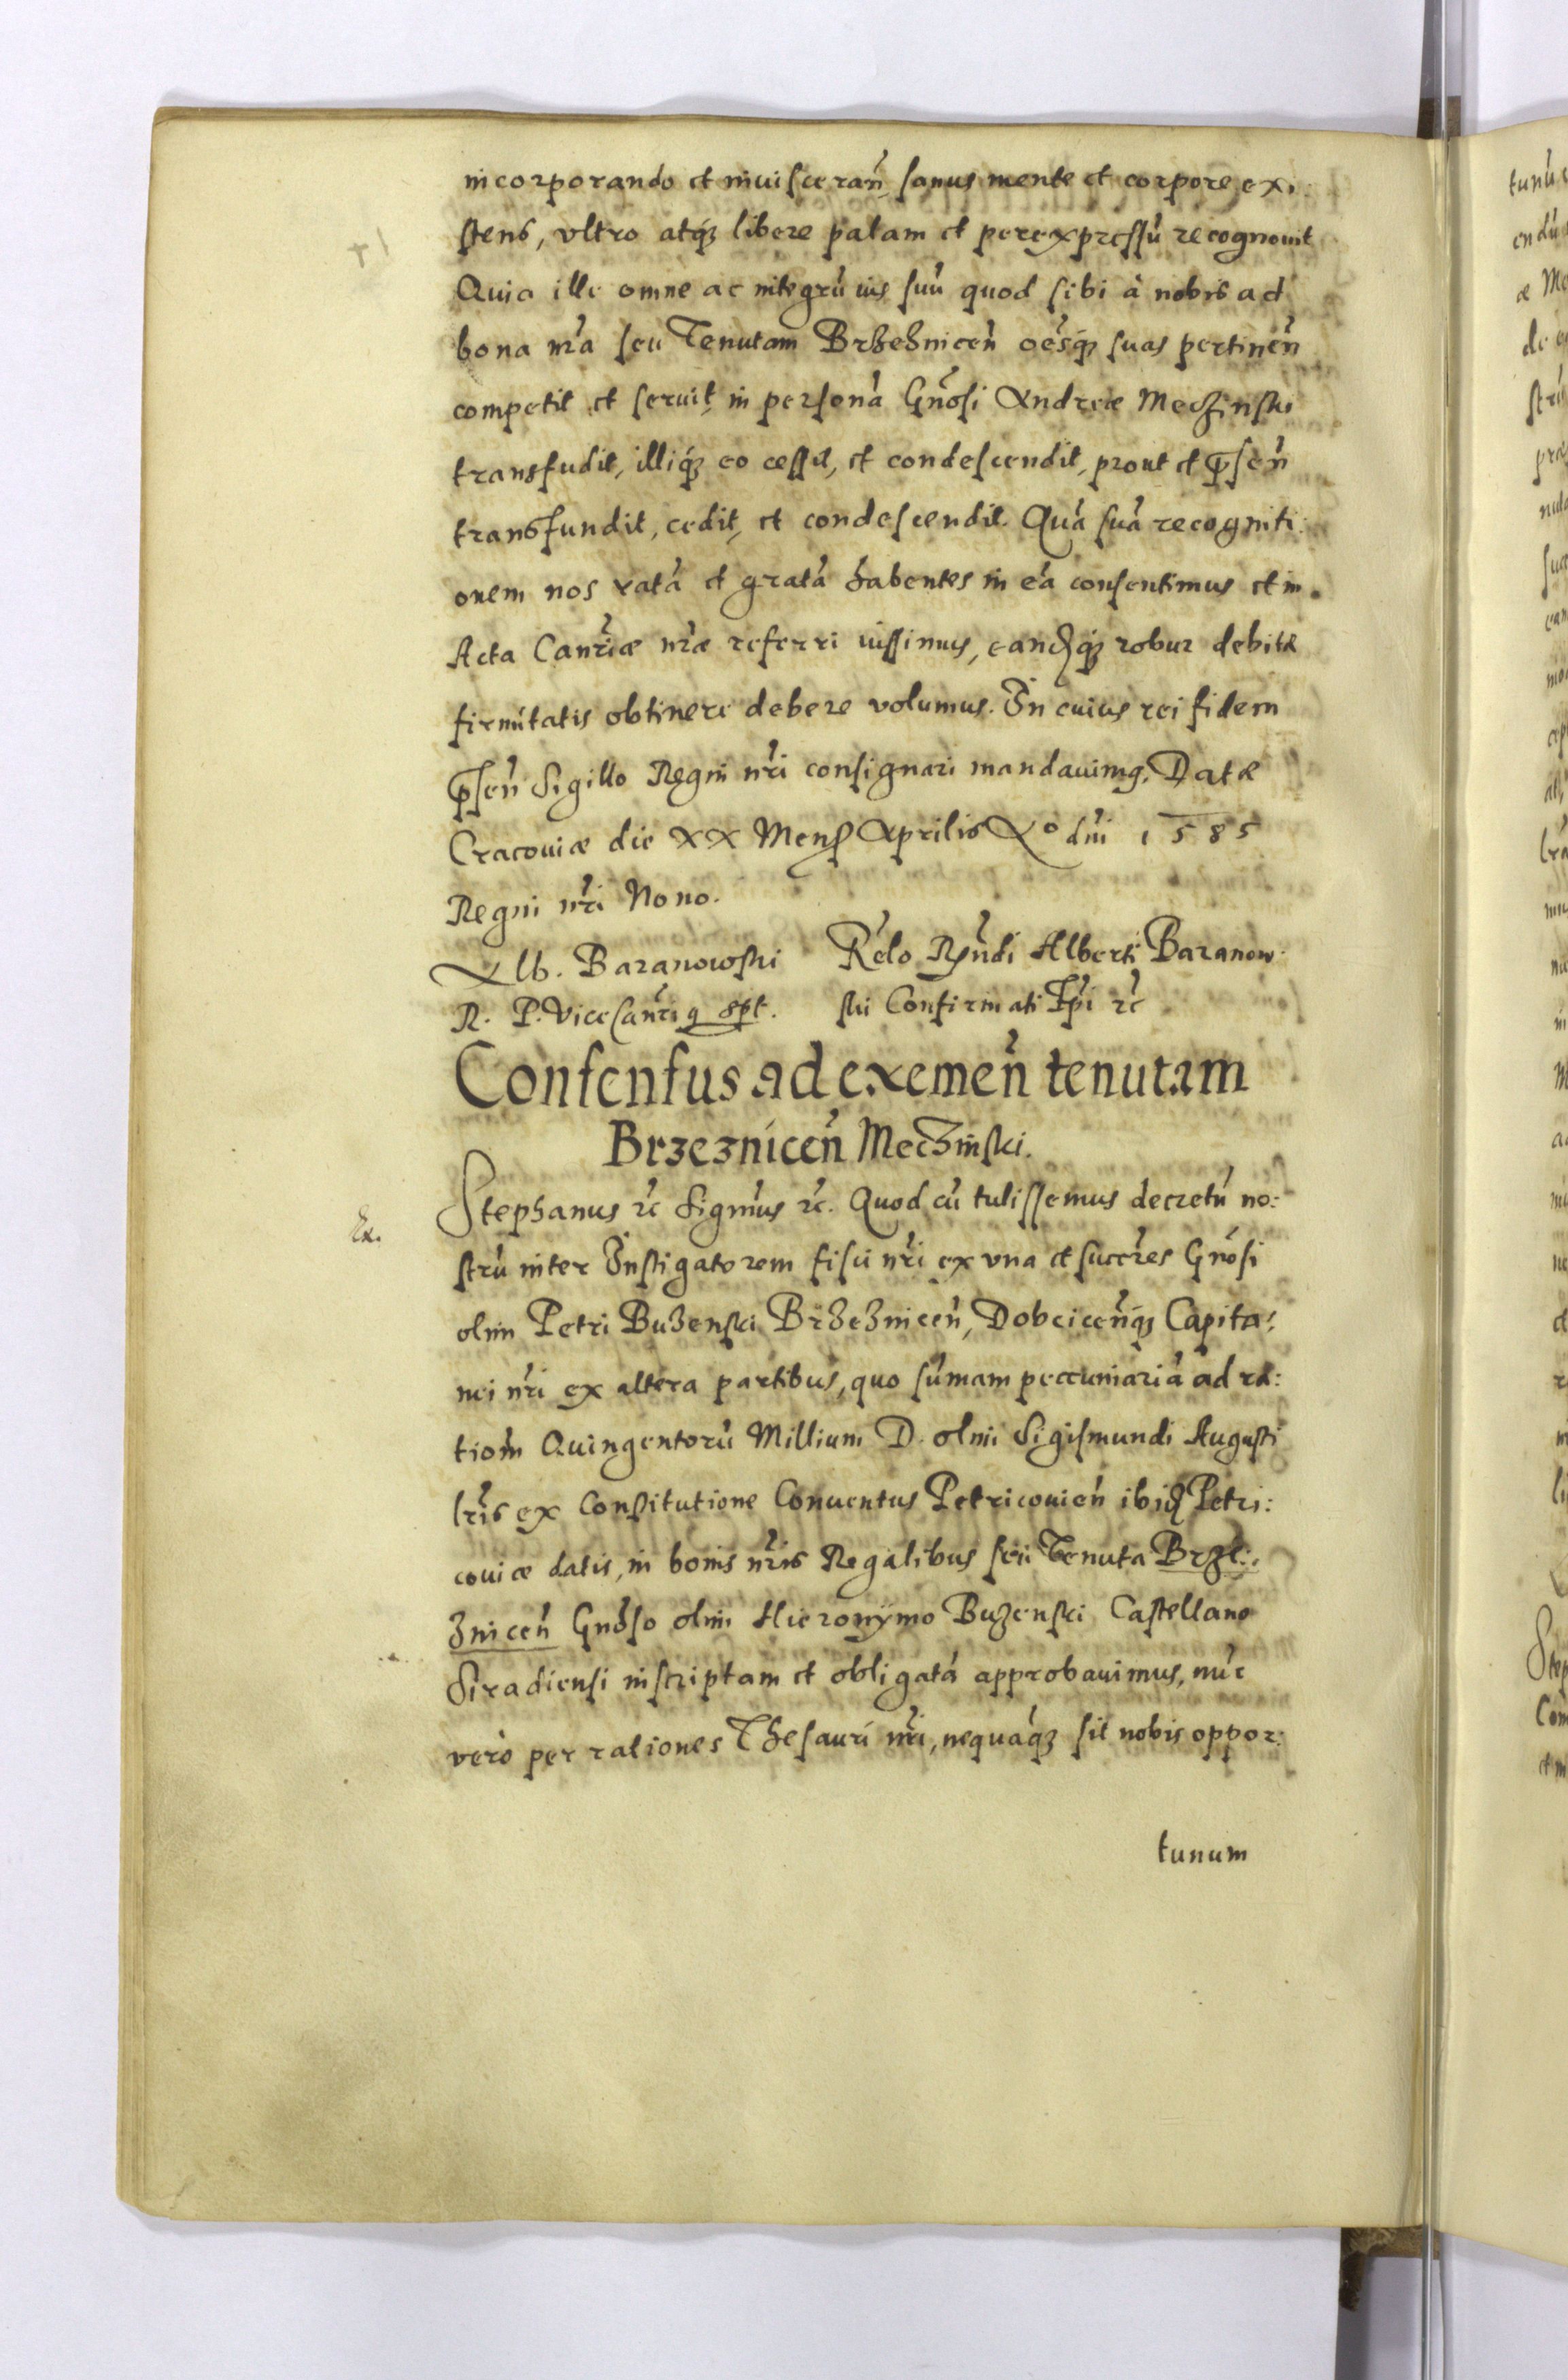 incorporando et inuisceran̄, sanus mente et corpore exi:
stens, vltro atq́ȝ libere palam et per expressū recognouit
Quia ille omne ac integrū ius suū quod sibi à nobis ad
bona nr̄a seu Tenutam Brzeznicen̄ oēsq́ȝ suas pertinen̄
competit et seruit, in personā Gn̄osi Andreæ Meczinski
transfudit, illiq́ȝ eo cessit, et condescendit, prout et p̄sen̄
transfundit, cedit, et condescendit. Quā suā recogniti:
onem nos ratā et gratā habentes in eā consentimus et in
Acta Canr̄iæ nr̄æ referri iussimus, eandq́ȝ robur debitæ
firmitatis obtinere debere volumus. In cuius rei fidem
p̄sen̄ Sigillo Regni nr̄i consignari mandauimꝯ. Datæ
Cracouiæ die XX Mens Aprilis Aº dn̄i 1585
Regni nr̄i Nono.
Alb. Baranowski
R. P. Vice Canr̄iꝯ spt.
Rēlo Rn̄di Alberti Baranow:
ski Confirmati Ep̄i rc̄
Consensus ad exemen̄ tenutam
Brzeznicen̄ Meczinski.
Ex.
Stephanus rc̄ Signm̄us rc̄. Quod cū tulissemus decretū no:
strū inter Instigatorem fisci nr̄i ex vna et succr̄es Gn̄osi
olim Petri Buzenski Brzeznicen̄, Dobcicen̄q́ȝ Capita:
nei nr̄i ex altera partibus, quo sūmam pecuniariā ad ra:
tiom̄ Quingentorū Millium D. olim Sigismundi Augusti
lr̄is ex Constitutione Conuentus Petricouien̄ ibid Petri:
couiæ datis, in bonis nr̄is Regalibus seu Tenuta Brze:
znicen̄ Gn̄oso olim Hieronÿmo Buzenski Castellano
Siradiensi inscriptam et obligatā approbauimus, nūc
verò per rationes Thesauri nr̄i, nequāq́ȝ sit nobis oppor:
tunum